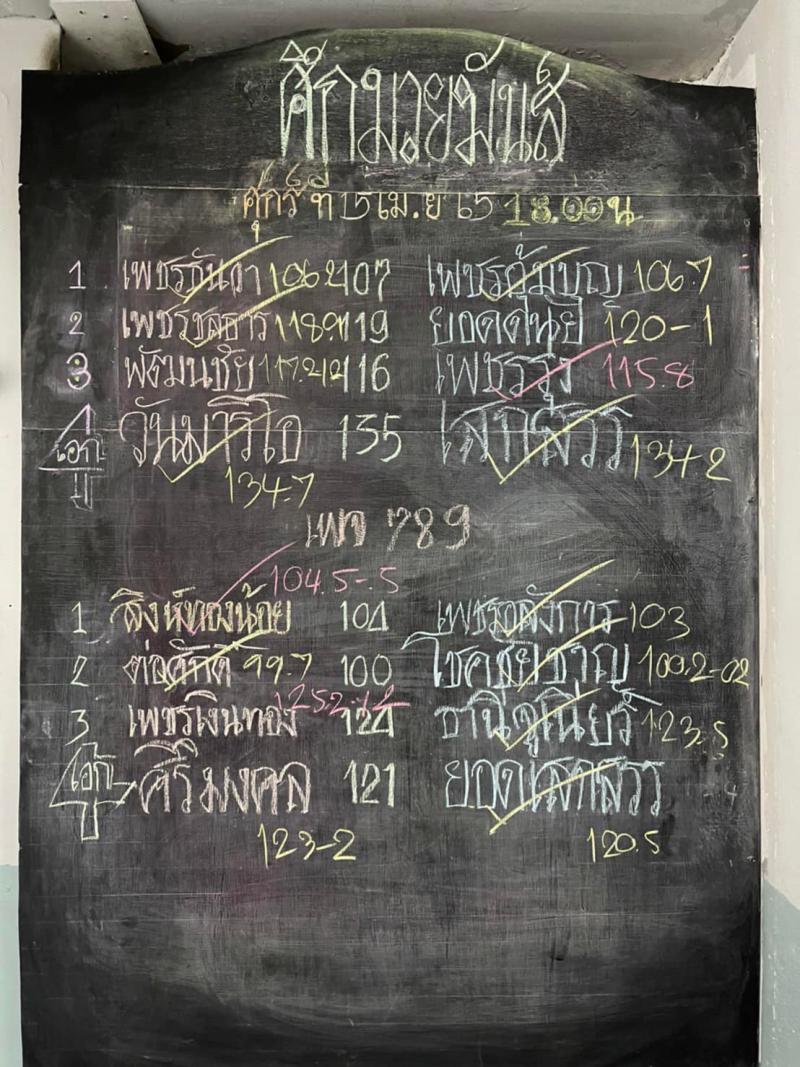 ศึกมวยมันส์
ศุกร์ ที่ 15 เม.ย 65 18.00 น
1 เพชรกันดา 106.2 107 เพชรคุ้มบุญ 106.7
2 เพชรชลธาร 118.9 119 ยอดดนัย 120-1
3 พังมนชัย 117.2 116 เพชรรุ่ง 115.8
4 เอก วันมาริโอ 135 เสกสรร 134+2
134.7
เพชร 789
104.5-.5
1 สิงห์ทองน้อย 104 เพชรอลังการ 103
2 ต่อศักดิ์ 99.7 100 โชคชัยชาญ 100.2-02
125.2-1.2
3 เพชรเงินทอง 124 ธานีจูเนียร์ 123.5
4 เอก ศิริมงคล 121 ยอดเสกสรร
123-2 120.5